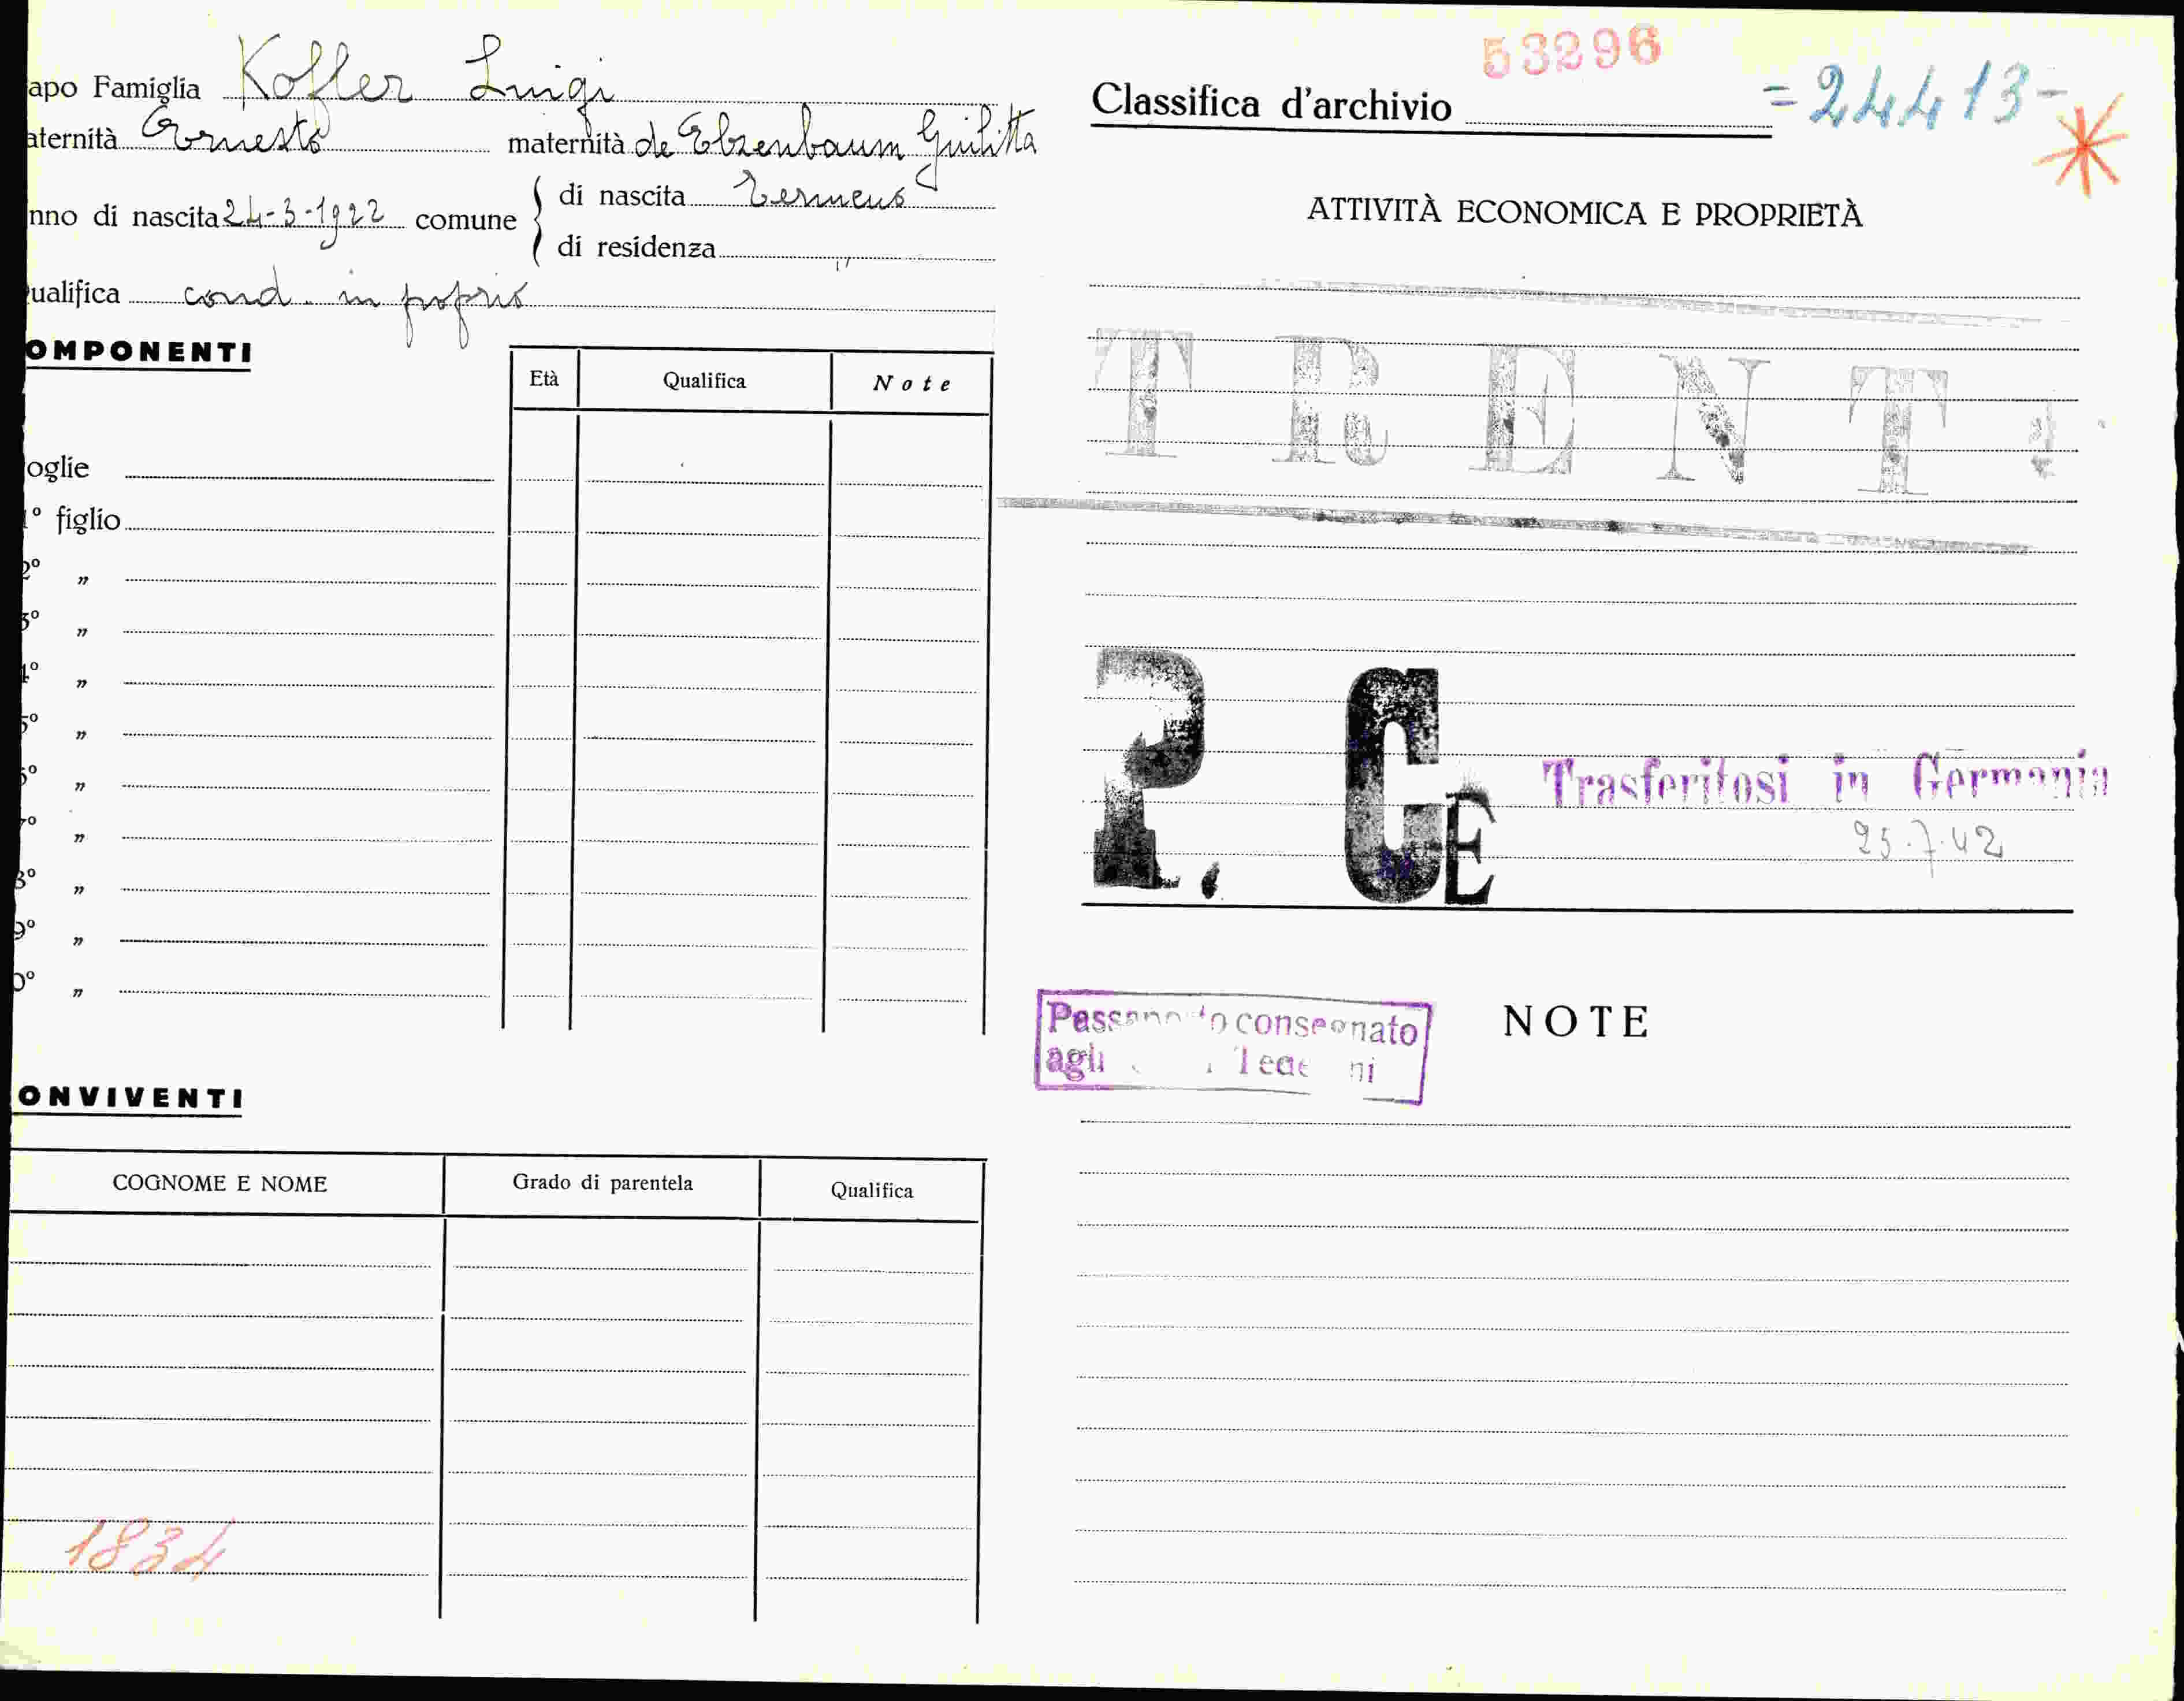 apo Famiglia Kofler Luigi
aternità Ernesto maternità de Elzenbaum Giulitta
nno di nascita 24-3-1922 comune
di nascita Termeno
di residenza "
ualifica cond. in proprio
OMPONENTI
Età Qualifica Note
oglie
1° figlio
2° "
3° "
4° "
5° "
6° "
7° "
8° "
9° "
0° "
ONVIVENTI
COGNOME E NOME Grado di parentela Qualifica
1834
53296
Classifica d'archivio =24413-
ATTIVITÀ ECONOMICA E PROPRIETÀ
TRENT
P. G E
Trasferitosi in Germania
25.7.42
NOTE
consegnato
agli